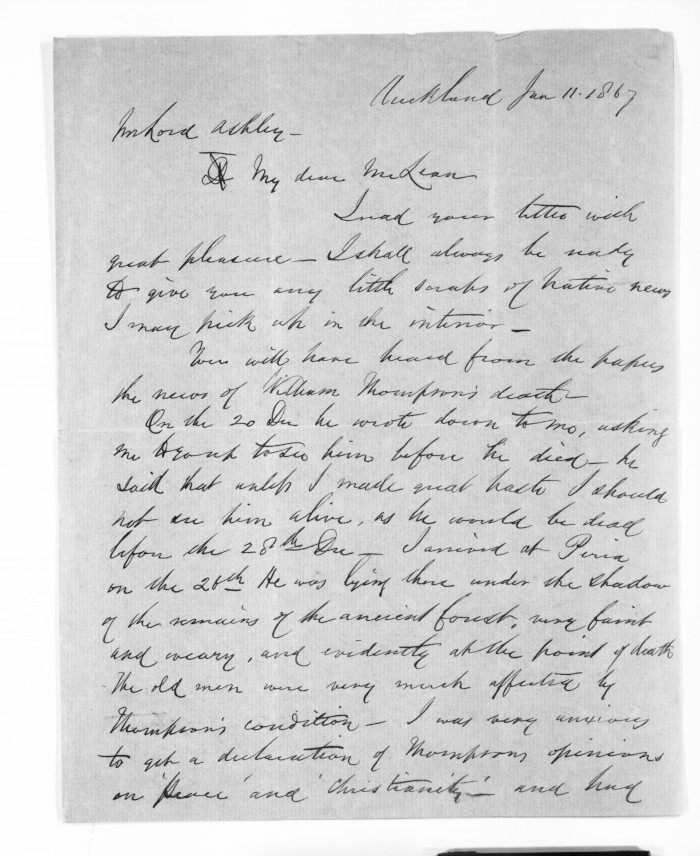 Auckland Jan 11. 1867
My dear McLean
I read your letter with
great pleasure – I shall always be ready
to give you any little scraps of Native news
I may pick up in the interior –
You will have heard from the papers
the news of William Thompson's death –
On the 20 Dec he wrote down to me, asking
me to go up to see him before he died – he
said that unless I made great haste I should
not see him alive, as he would be dead
before the 28th Dec – I arrived at Peria
on the 26th He was lying there under the shadow
of the remains of the ancient forest, very faint
and weary, and evidently at the point of death
The old men were very much affected by
Thompson's condition – I was very anxious
to get a declaration of Thompsons opinions
on 'Peace' and 'Christianity' – and had